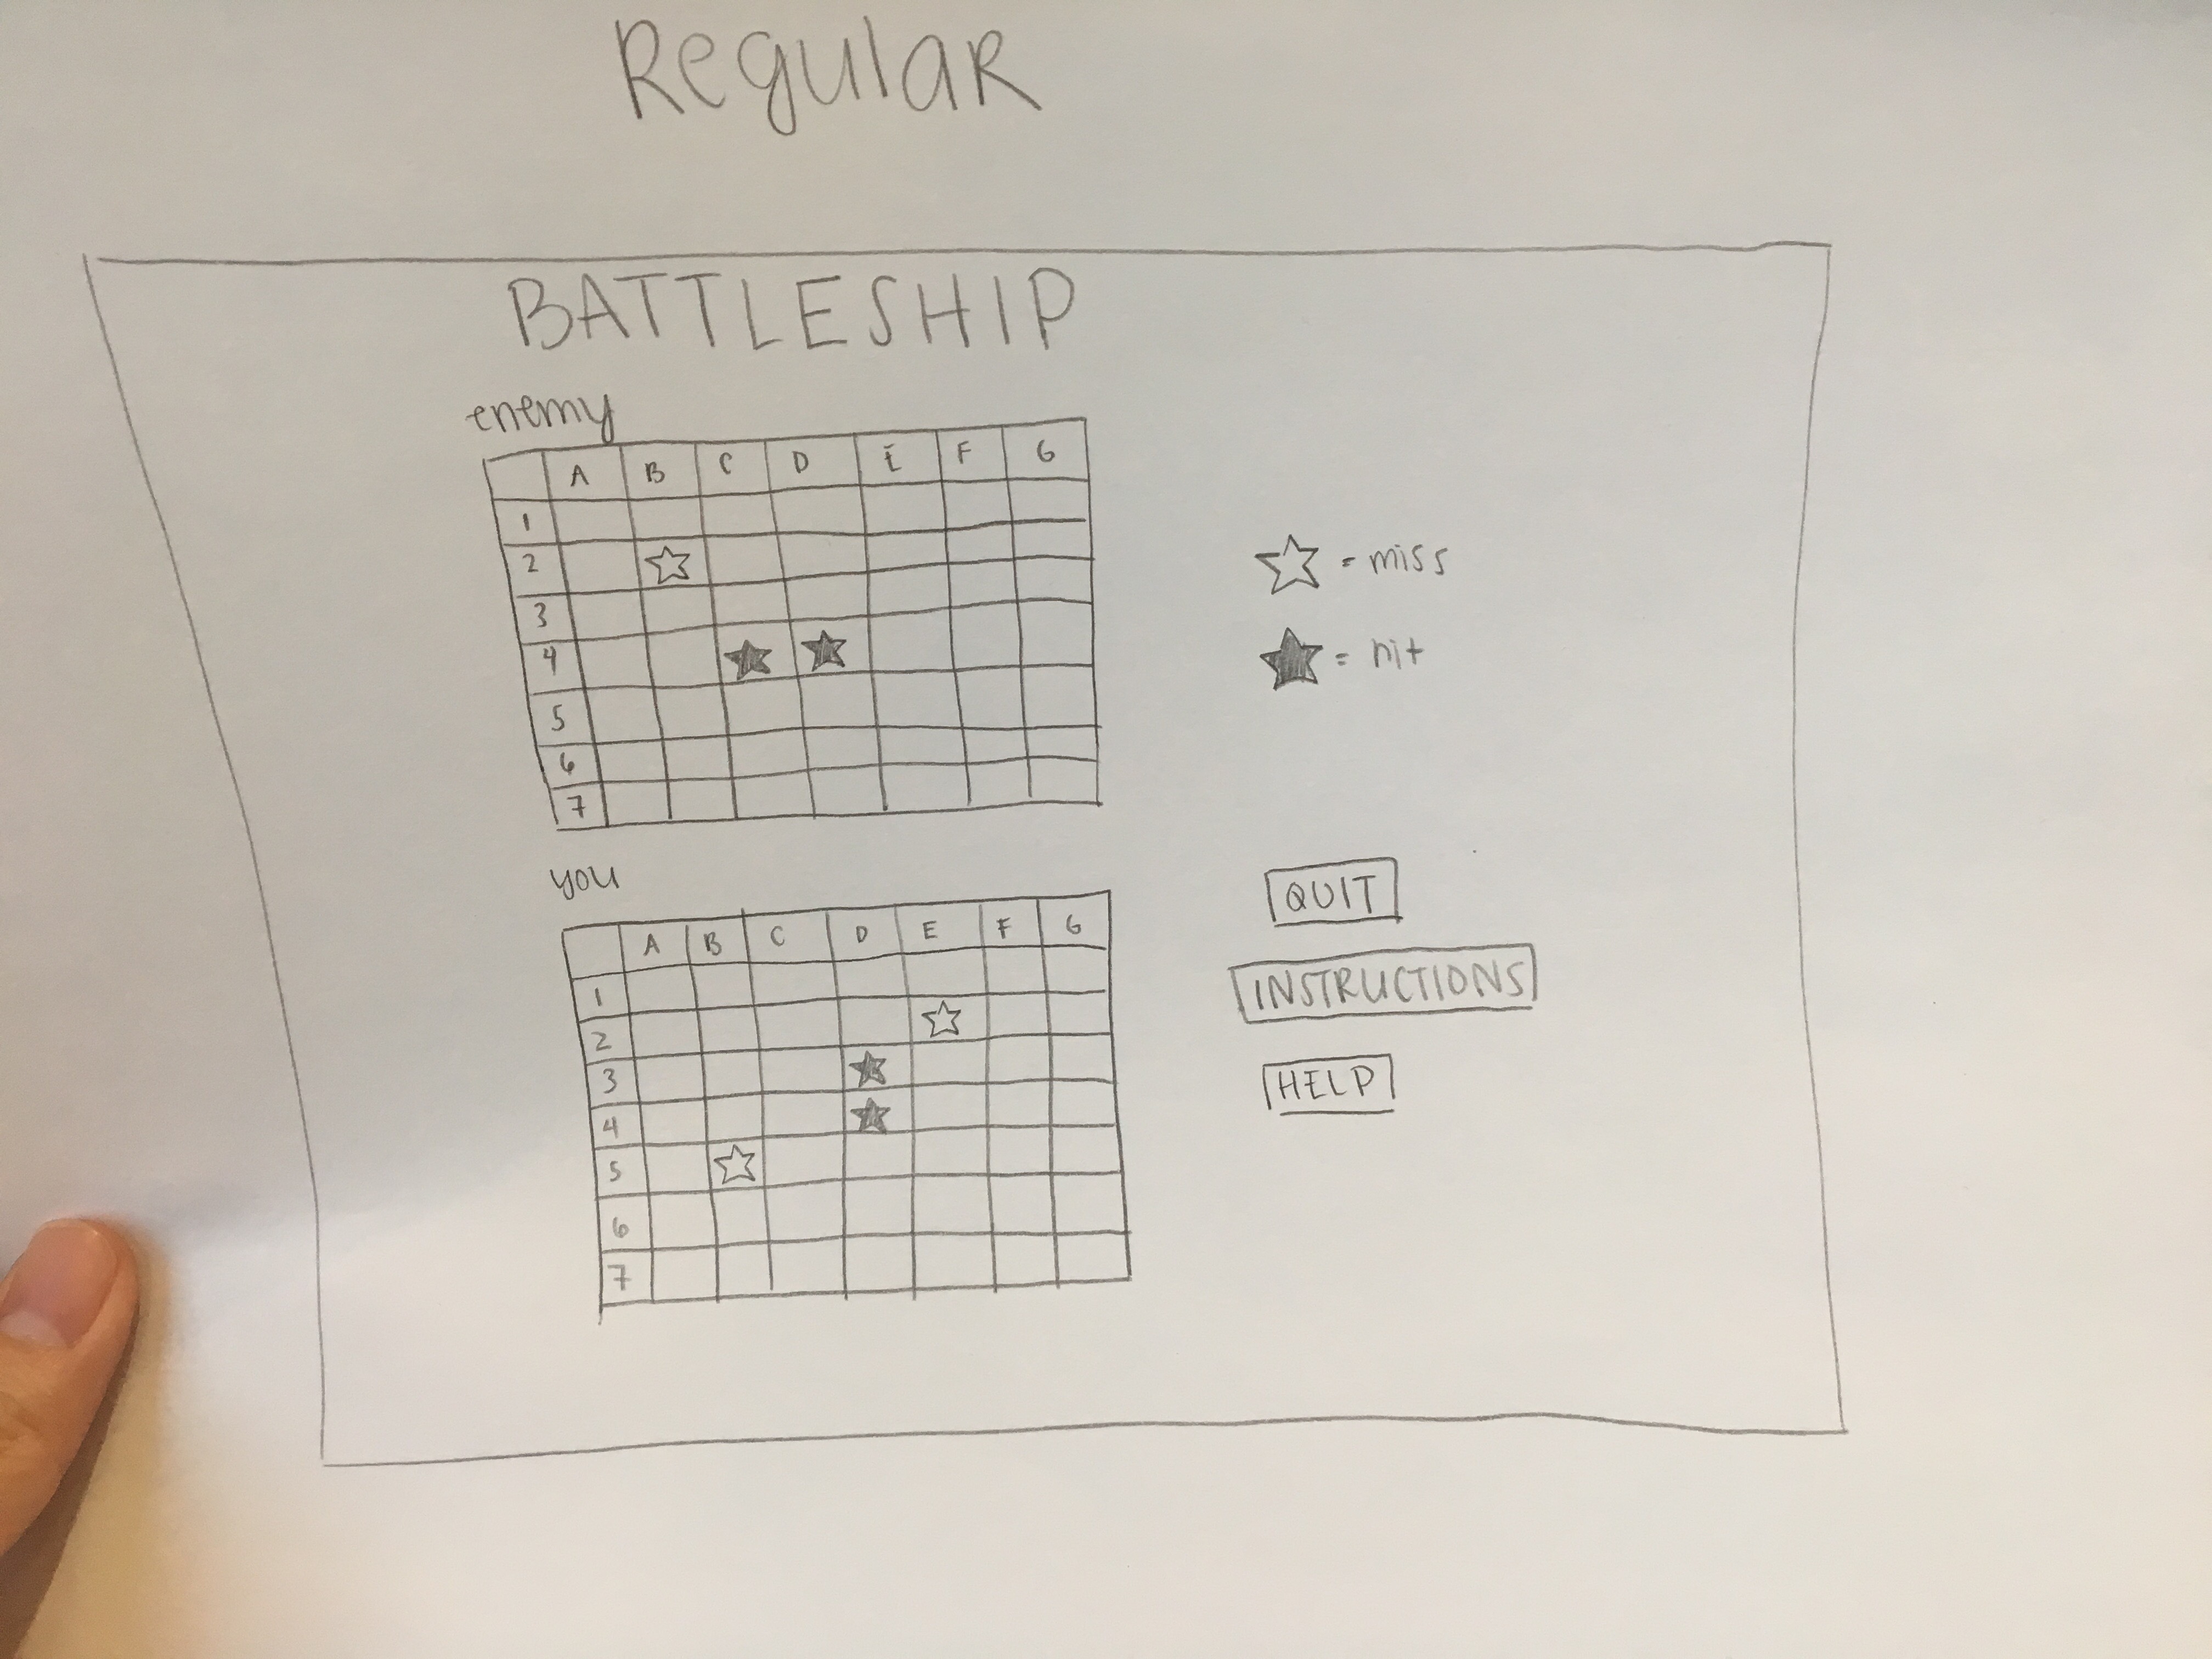 Regular
BATTLESHIP
enemy
A B C D E F G
1
2
3
4
5
6
7
☆ = miss
★ = hit
you
A B C D E F G
1
2
3
4
5
6
7
QUIT
INSTRUCTIONS
HELP